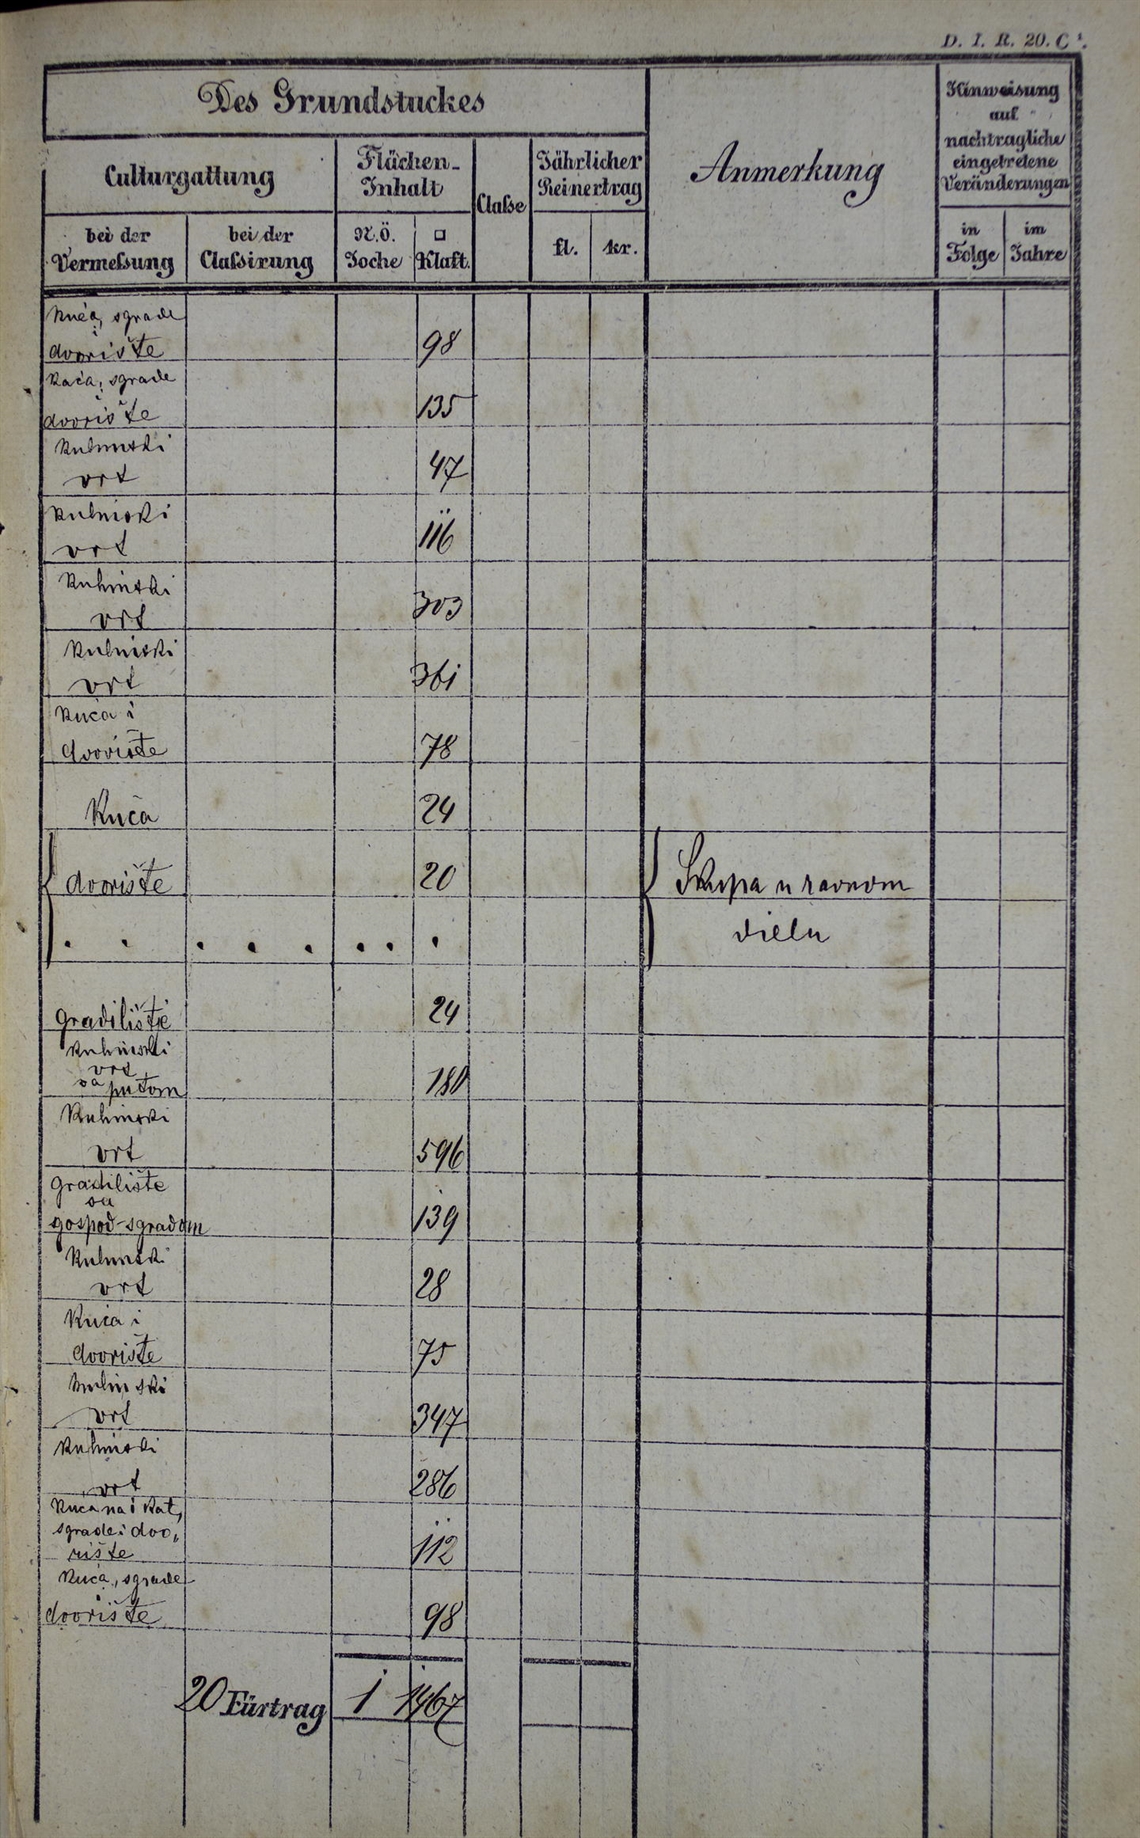 D. I. R. 20. C¹.
Des Grundstuckes
Culturgattung
Flächen-
Inhalt
Claſse
Jährlicher
Reinertrag
Anmerkung
Hinweisung
auf
nachtragliche
eingetretene
Veränderungen
bei der
Vermeſsung
bei der
Claſsirung
N.Ö.
Joche
□
Klaft.
fl.
kr.
in
Folge
im
Jahre
kuća, sgrade
i
dvorište 98
kuća, sgrade
i
dvorište 135
kuhinski
vrt 47
kuhinski
vrt 116
kuhinski
vrt 303
kuhinski
vrt 361
kuća i
dvorište 78
Kuća 24
dvorište 20
Skupa u ravnom
dielu
. . . . . . . .
gradilište 24
kuhinski
vrt
sa putom 180
kuhinski
vrt 596
gradilište
sa
gospod-sgradom 139
kuhinski
vrt 28
Kuća i
dvorište 75
kuhinski
vrt 347
kuhinski
vrt 286
kuća na i kat,
sgrade i dvo„
rište 112
kuća, sgrade
i
dvorište 98
20 Fürtrag 1 1467